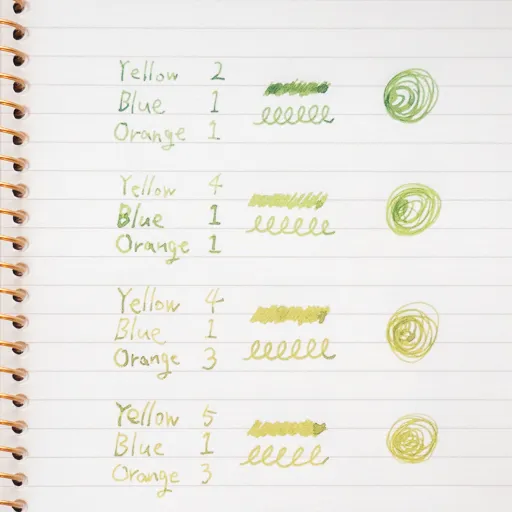 Yellow 2
Blue 1
Orange 1
Yellow 4
Blue 1
Orange 1
Yellow 4
Blue 1
Orange 3
Yellow 5
Blue 1
Orange 3